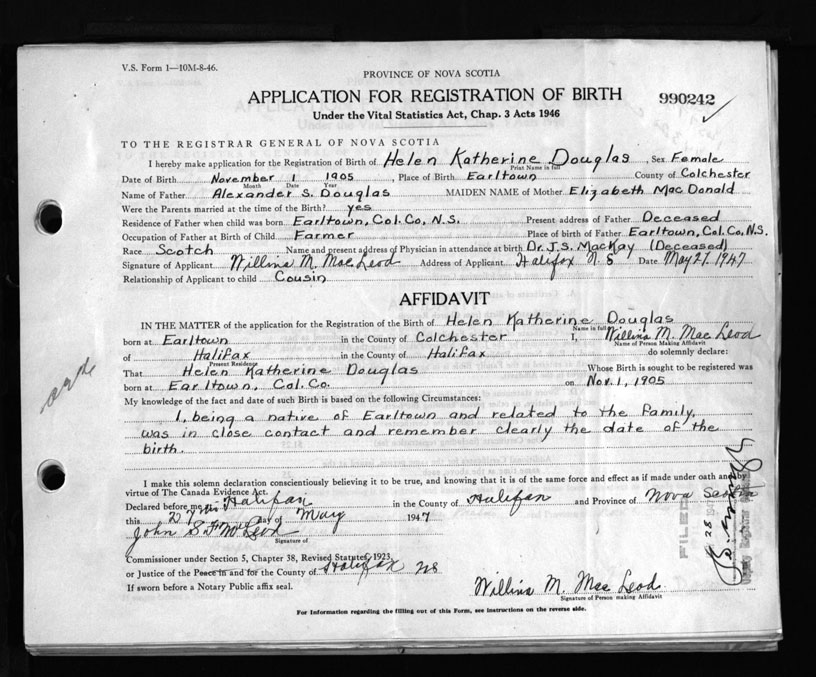 V.S. Form 1—10M-8-46.
PROVINCE OF NOVA SCOTIA
APPLICATION FOR REGISTRATION OF BIRTH
990242
Under the Vital Statistics Act, Chap. 3 Acts 1946
TO THE REGISTRAR GENERAL OF NOVA SCOTIA
I hereby make application for the Registration of Birth of Helen Katherine Douglas, Sex Female
Print Name in full
Date of Birth November 1 1905, Place of Birth Earltown County of Colchester
Month Date Year
Name of Father Alexander S. Douglas MAIDEN NAME of Mother Elizabeth MacDonald
Were the Parents married at the time of the Birth? yes
Residence of Father when child was born Earltown, Col. Co, N.S. Present address of Father Deceased
Occupation of Father at Birth of Child Farmer Place of birth of Father Earltown, Col. Co, N.S.
Race Scotch Name and present address of Physician in attendance at birth Dr. J.S. MacKay (Deceased)
Signature of Applicant Willina M. MacLeod Address of Applicant Halifax N.S Date May 27, 1947
Relationship of Applicant to child Cousin
AFFIDAVIT
IN THE MATTER of the application for the Registration of the Birth of Helen Katherine Douglas
Name in full
born at Earltown in the County of Colchester I, Willina M. MacLeod
Name of Person Making Affidavit
of Halifax in the County of Halifax do solemnly declare:
Present Residence
That Helen Katherine Douglas Whose Birth is sought to be registered was
born at Earltown, Col. Co. on Nov. 1, 1905
My knowledge of the fact and date of such Birth is based on the following Circumstances:
I, being a native of Earltown and related to the family,
was in close contact and remember clearly the date of the
birth.
I make this solemn declaration conscientiously believing it to be true, and knowing that it is of the same force and effect as if made under oath and by
virtue of The Canada Evidence Act.
Declared before me at Halifax in the County of Halifax and Province of Nova Scotia
this day of May 1947
John S F McLeod
Signature of
Commissioner under Section 5, Chapter 38, Revised Statutes, 1923,
or Justice of the Peace in and for the County of Halifax NS
If sworn before a Notary Public affix seal.
Willina M. MacLeod
Signature of Person making Affidavit
For Information regarding the filling out of this Form, see instructions on the reverse side.
FILED
28